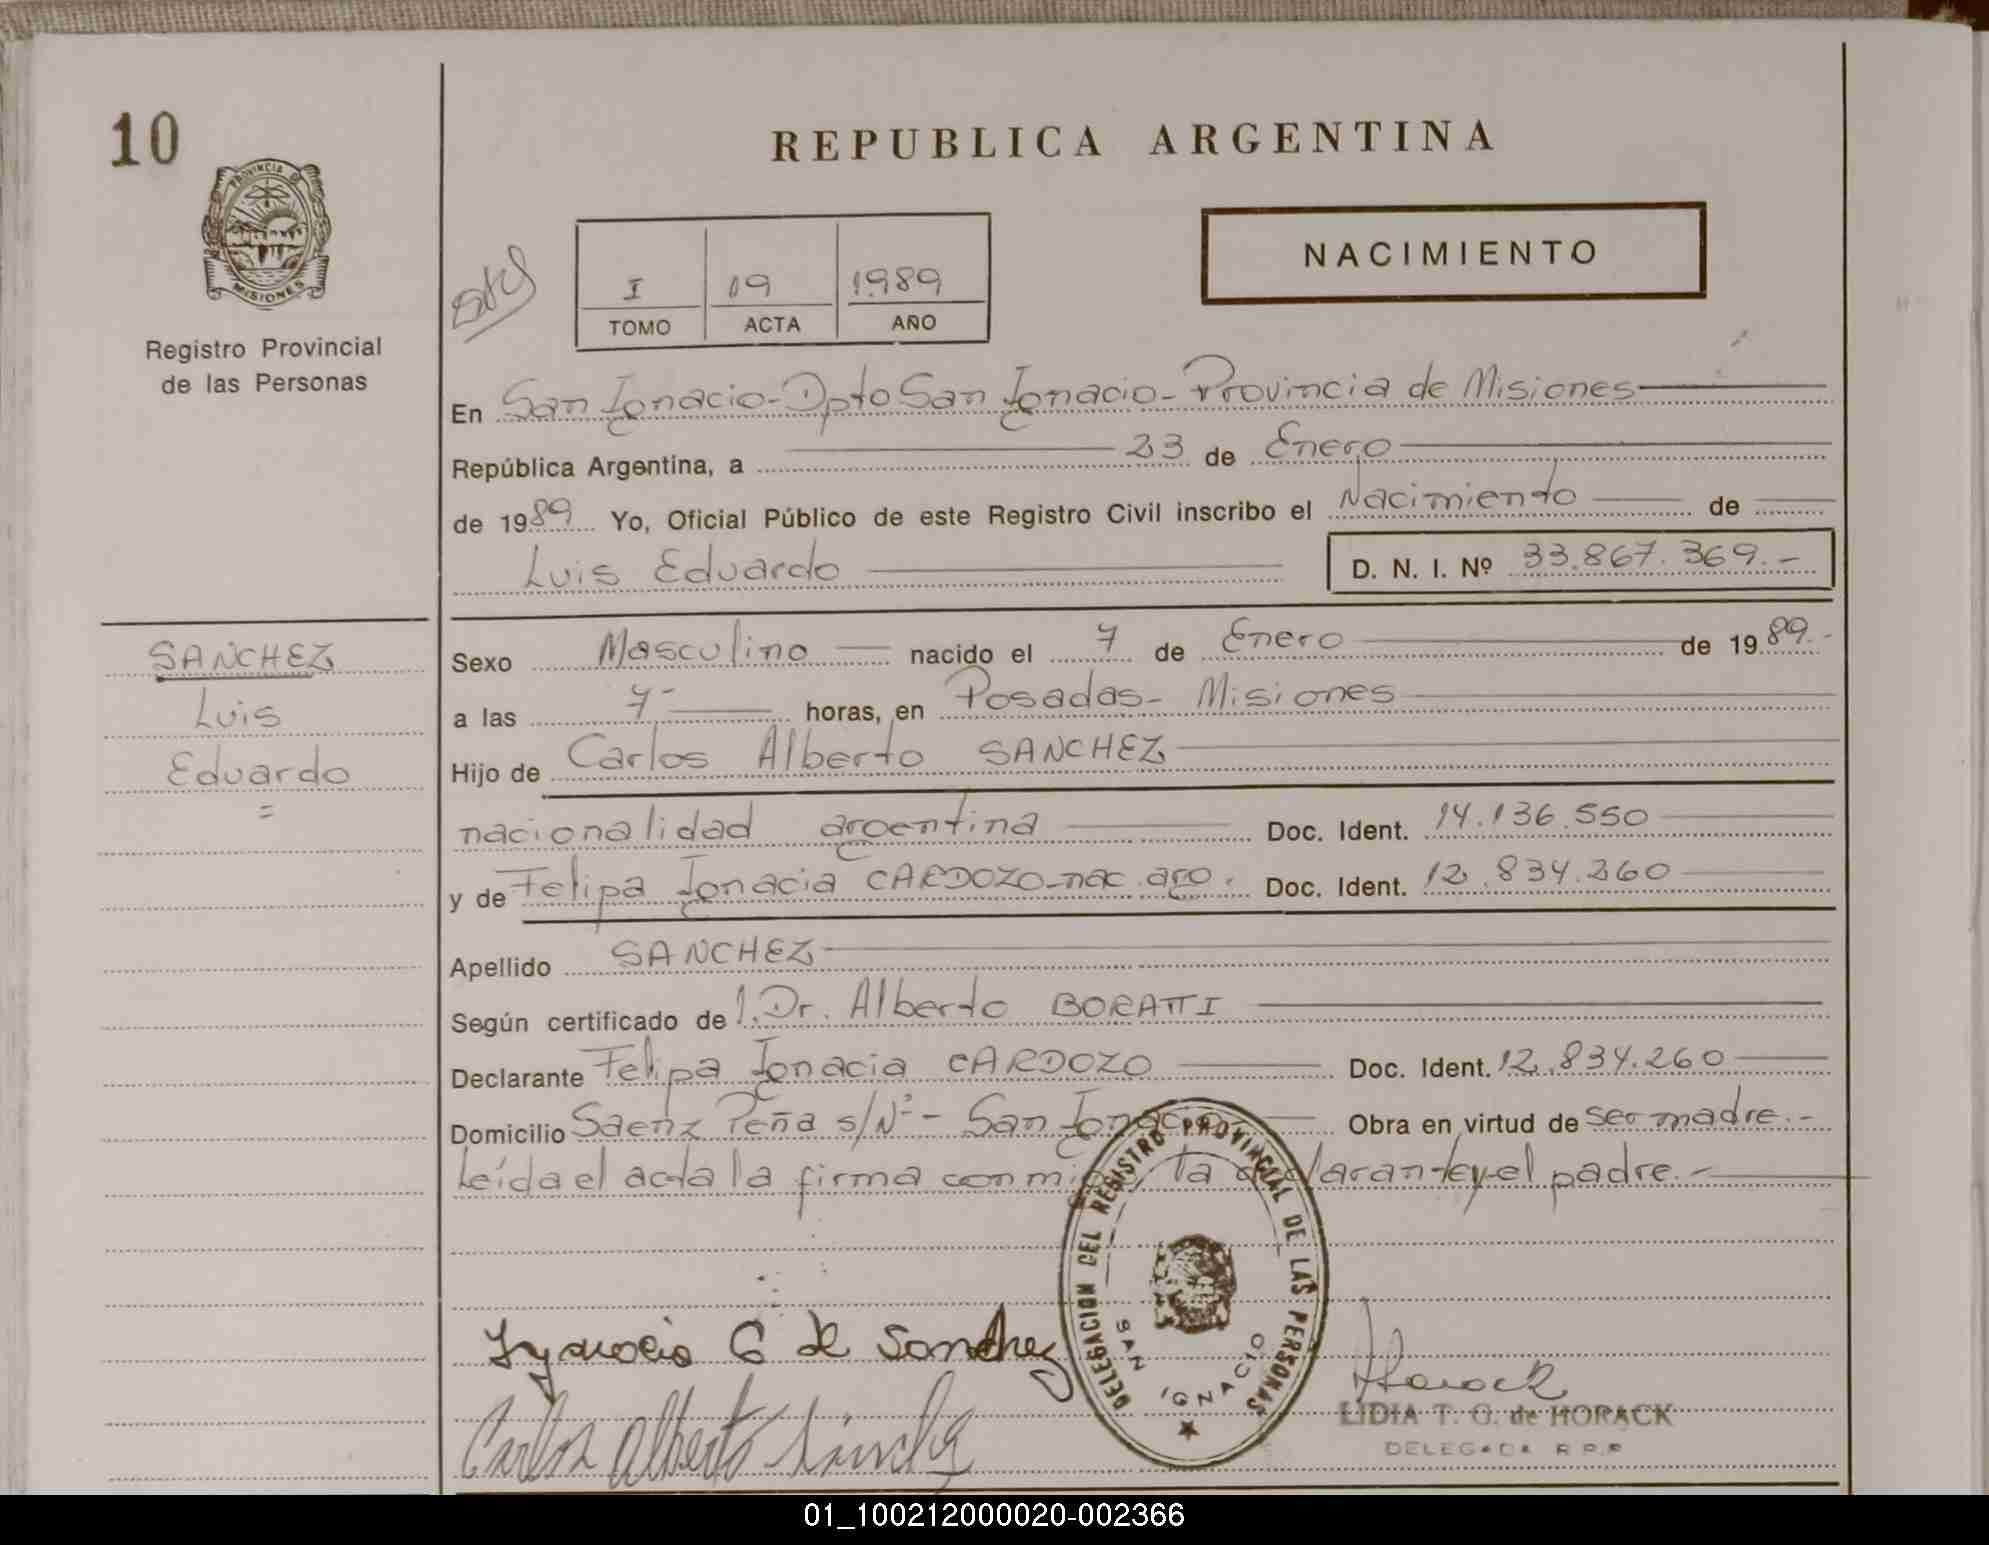 10
PROVINCIA DE
MISIONES
Registro Provincial
de las Personas
SANCHEZ
Luis
Eduardo
=
REPUBLICA ARGENTINA
NACIMIENTO
I 19 1989
TOMO ACTA AÑO
En San Ignacio-Dpto San Ignacio-Provincia de Misiones
República Argentina, a 23 de Enero
de 1989 Yo, Oficial Público de este Registro Civil inscribo el Nacimiento de
Luis Eduardo D. N. I. Nº 33.867.369.-
Sexo Masculino nacido el 7 de Enero de 1989.-
a las 7- horas, en Posadas- Misiones
Hijo de Carlos Alberto SANCHEZ
nacionalidad argentina Doc. Ident. 14.136.550
y de Felipa Ignacia CARDOZO-nac.arg. Doc. Ident. 12.834.260
Apellido SANCHEZ
Según certificado de l.Dr. Alberto BORATTI
Declarante Felipa Ignacia CARDOZO Doc. Ident. 12.834.260
Domicilio Saenz Peña s/Nº- San Ignacio Obra en virtud de ser madre.-
Leída el acta la firma conmigo la declarante y el padre.-
DELEGACION DEL REGISTRO PROVINCIAL DE LAS PERSONAS
SAN IGNACIO
Ignacia C de Sanchez
Carlos Alberto Sánchez
Horack
LIDIA T. G. de HORACK
DELEGADA R.P.P
01_100212000020-002366